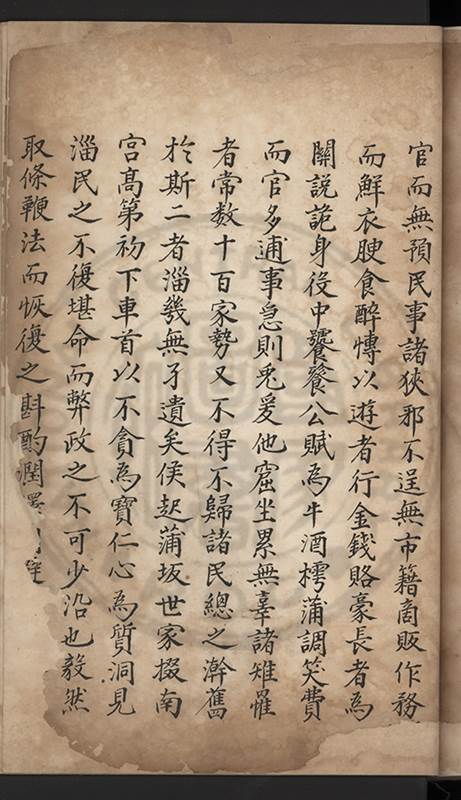 官而無預民事諸狹邪不逞無市籍商販作務
而鮮衣腴食醉慱以遊者行金錢賂豪長者為
關說詭身役中饕餮公賦為牛酒樗蒲調笑費
而官多逋事急則兎爰他窟坐累無辜諸雉罹
者常数十百家勢又不得不歸諸民總之澣舊
於斯二者淄幾無孑遺矣侯起蒲坂世家掇南
宮髙第初下車首以不貪為寶仁心為質洞見
淄民之不復堪命而弊政之不可少沿也毅然
取條鞭法而恢復之斟酌潤澤